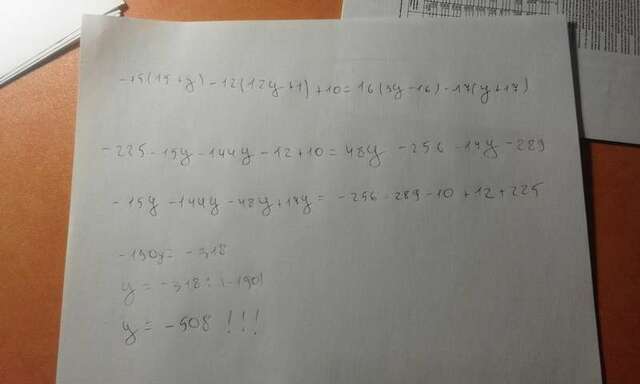 -15(15+y) -12(12y+1) +10= 16(3y-16) - 17(y+17)
-225 -15y -144y -12+10 = 48y -256 -17y -289
-15y -144y -48y +17y = -256 -289 -10 +12 +225
-190y = -318
y = -318 : (-190)
y = -508 !!!